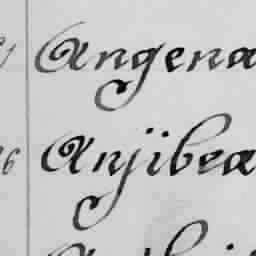 Angena
6 Anjibea